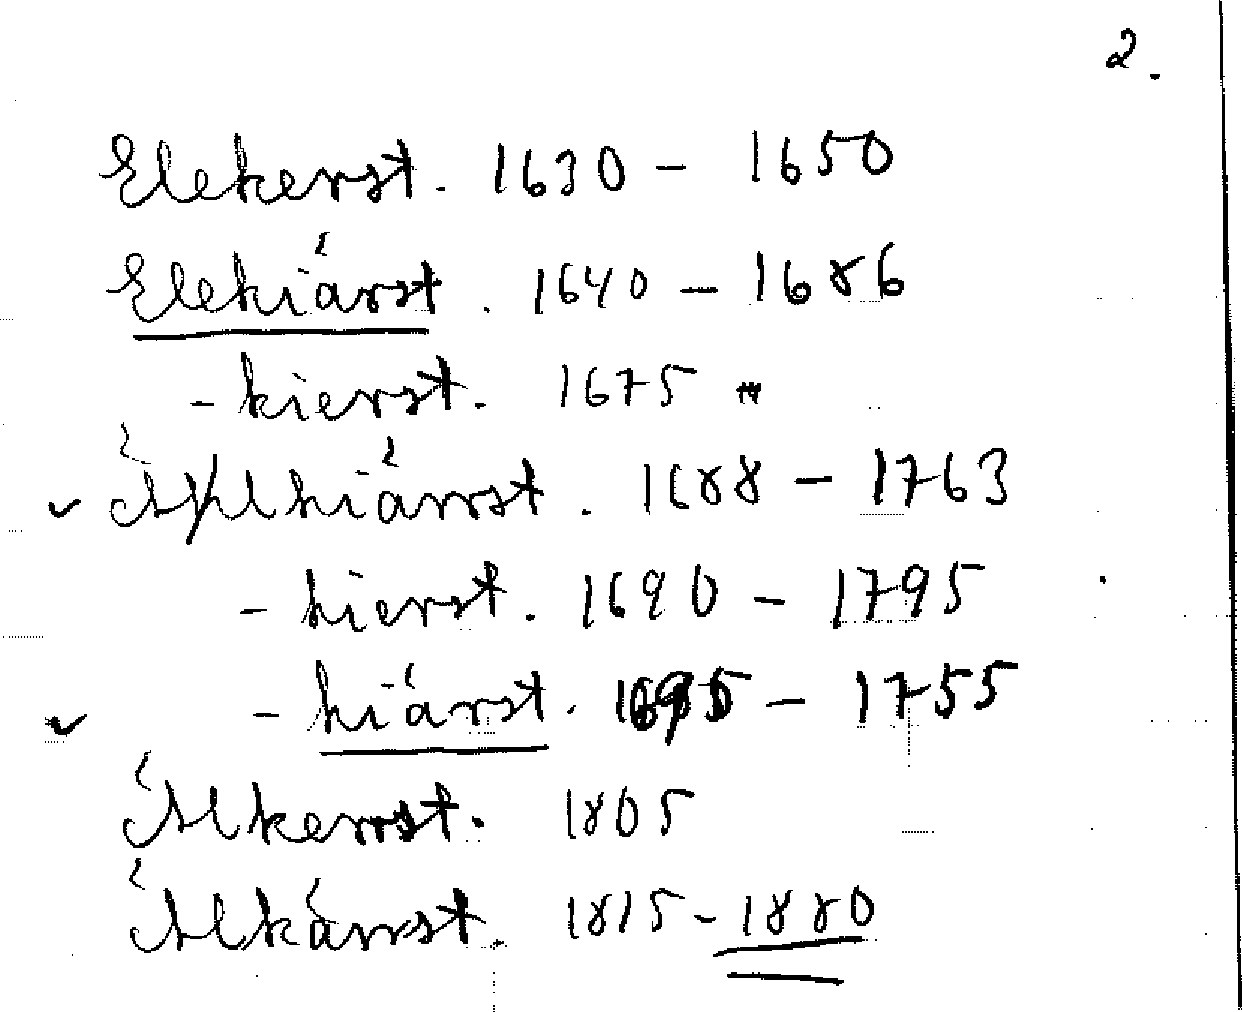 2.
Elekerst. 1630 - 1650
Elekiärst. 1640 - 1686
- kierst. 1675 "
✓ Älkiärst. 1688 - 1763
- kierst. 1690 - 1795
✓ - kiärst. 1695 - 1755
Älkerst. 1805
Älkärst. 1815 - 1880